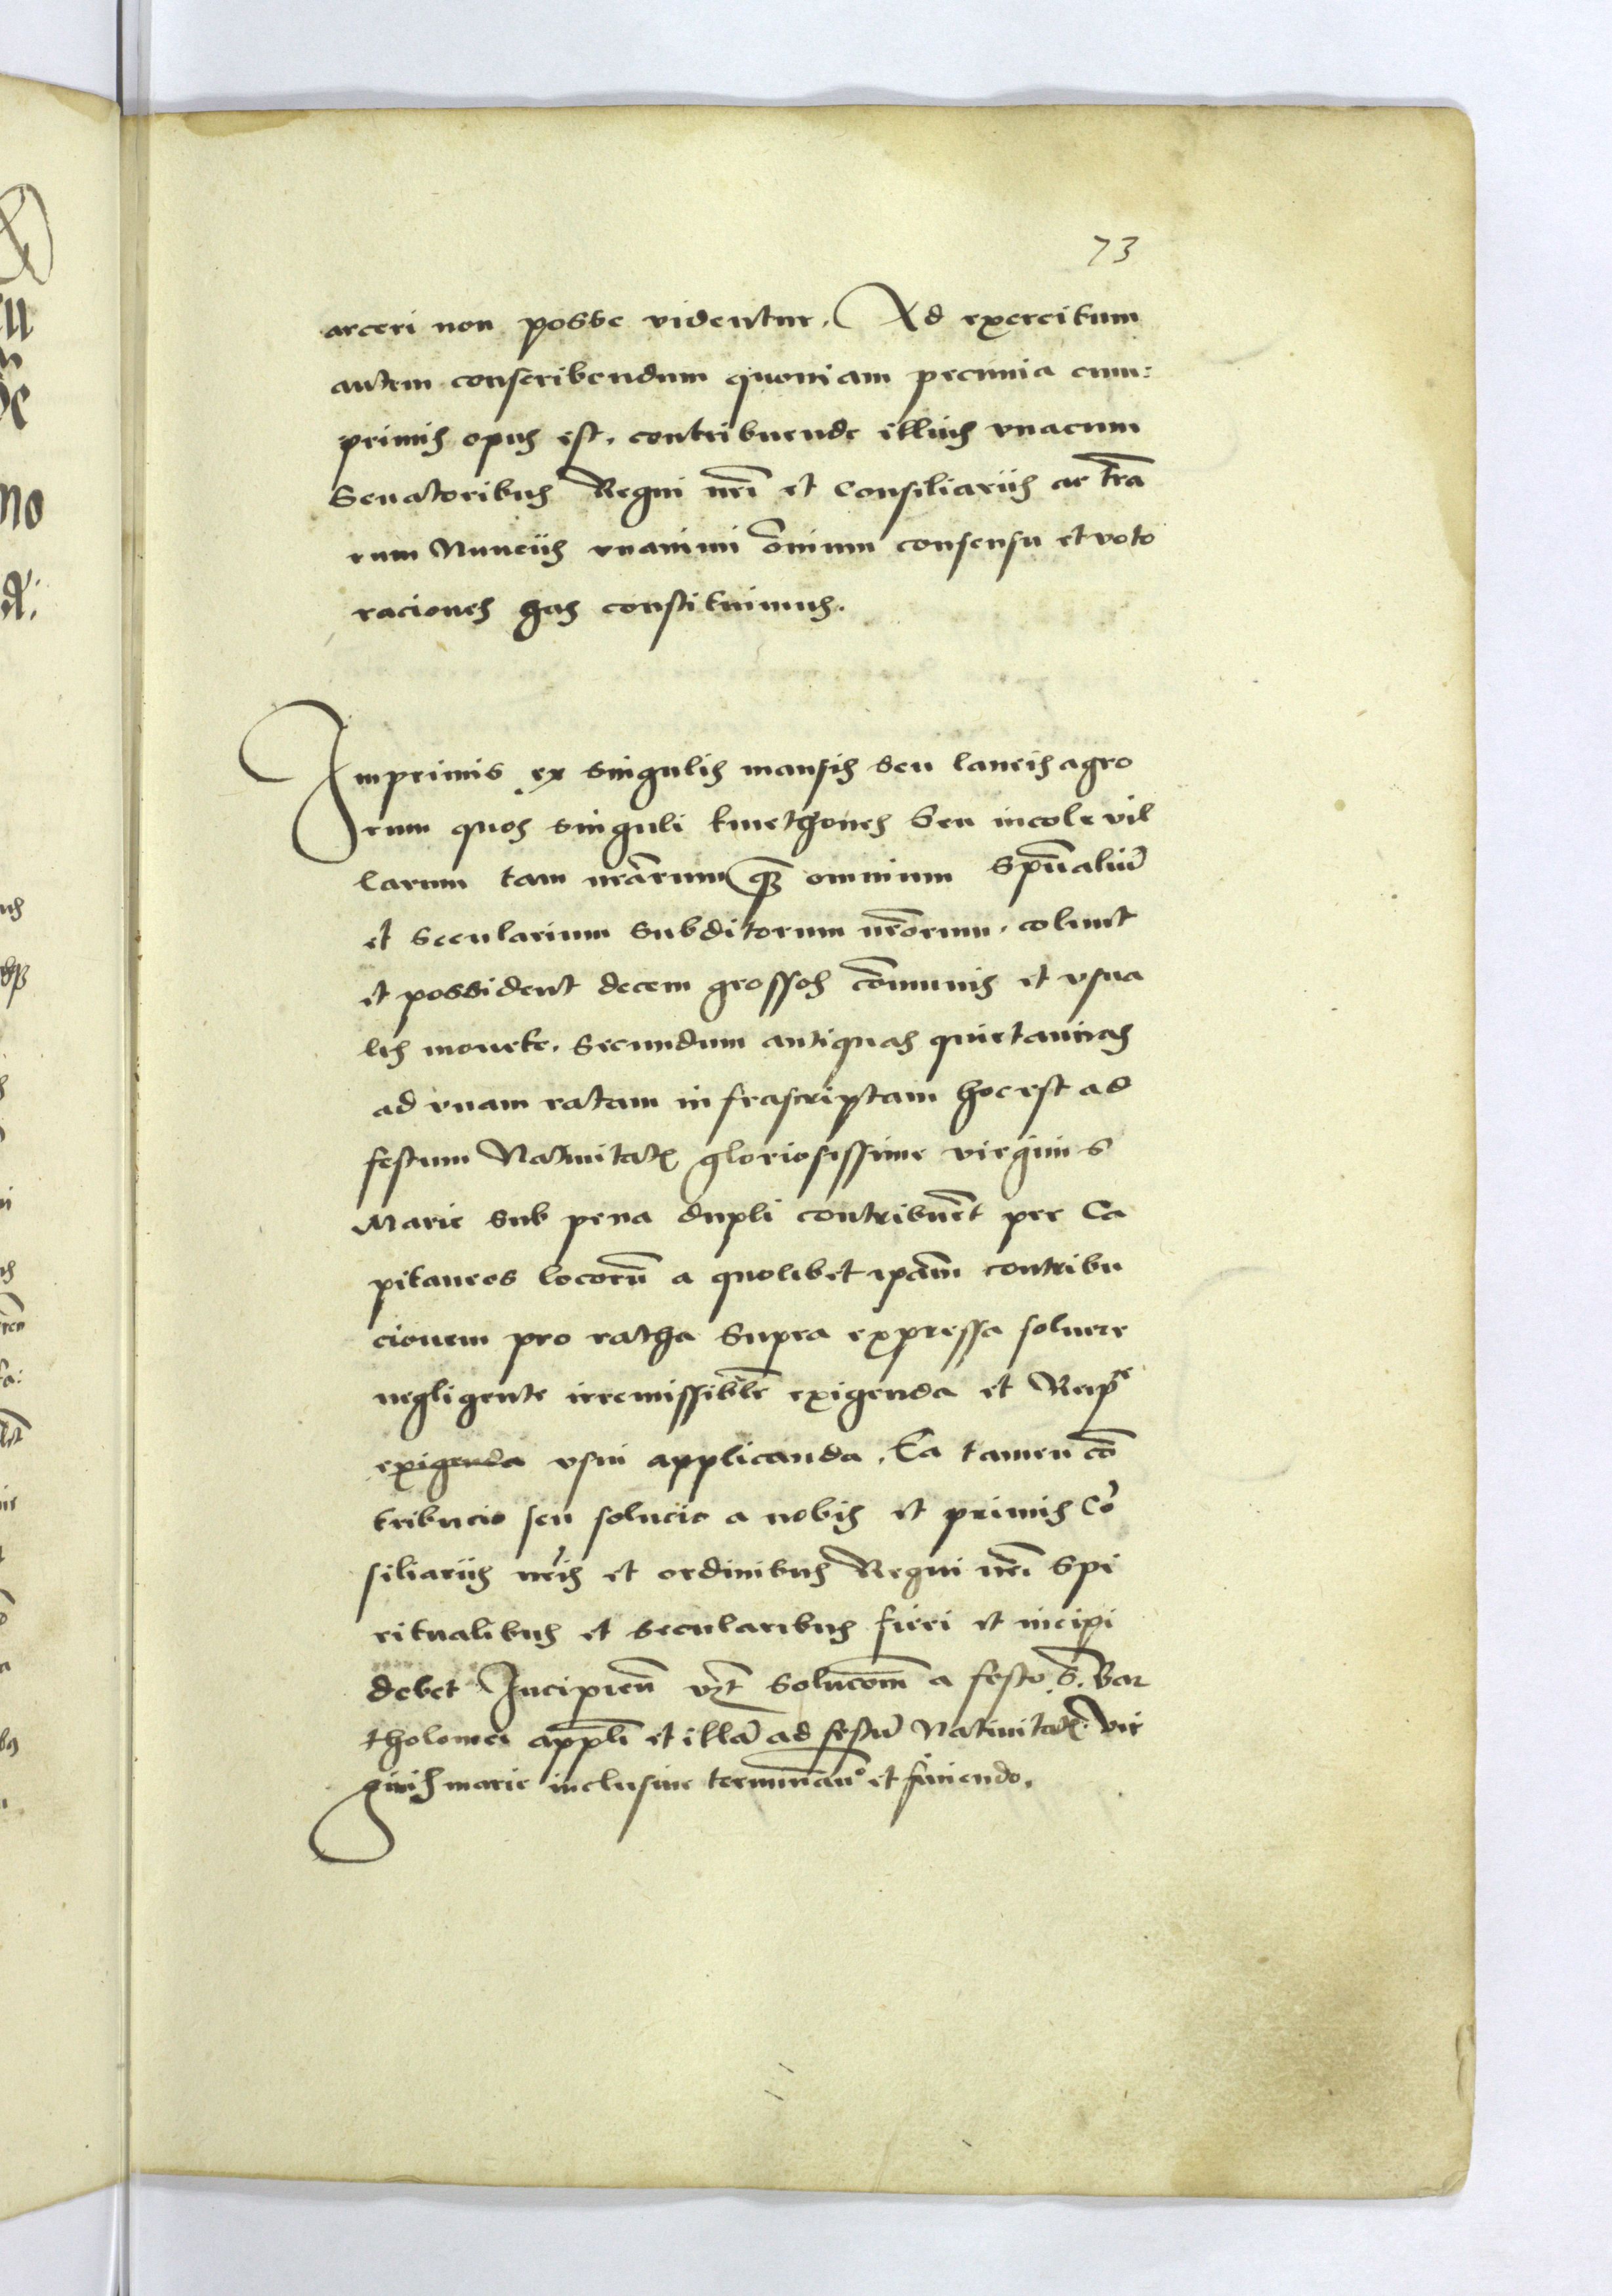 73
arceri non posse videntur. Ad exercitum
autem conscribendum quoniam pecunia cum:
primis opus est. contribuende illius vnacum
Senatoribus Regni nr̄i et Consiliariis ac tr̄a
rum Nunciis vnanimi om̄ium consensu et voto
raciones has constituimus.
Imprimis ex singulis mansis seu laneis agro
rum quos singuli kmethones Seu incole vil
larum tam nr̄arum q̄ omnium Sp̄ualiū
et Secularium Subditorum nr̄orum. colunt
et possident decem grossos cōmunis et vsua
lis monete. Secundum antiquas quietancias
ad vnam ratam infrascriptam hoc est ad
festum Natiuitatis gloriosissime virginis
Marie sub pena dupli contribuēt per Ca
pitaneos locorū a quolibet ip̄am contribu
cionem pro ratha Supra expressa soluere
negligente irremissibilr̄ exigenda et Reip
exigenda vsui applicanda. Ea tamen cō
tribucio seu solucio a nobis et primis Cō
siliariis nr̄is et ordinibus Regni nr̄i Spi
ritualibus et Secularibus fieri et incipi
debet Incipien̄ vz̄t Solucōm a festo S. Bar
tholomei app̄li et illā ad festū Natiuitatis Vir
ginis marie inclusiue terminan̄o et finiendo.